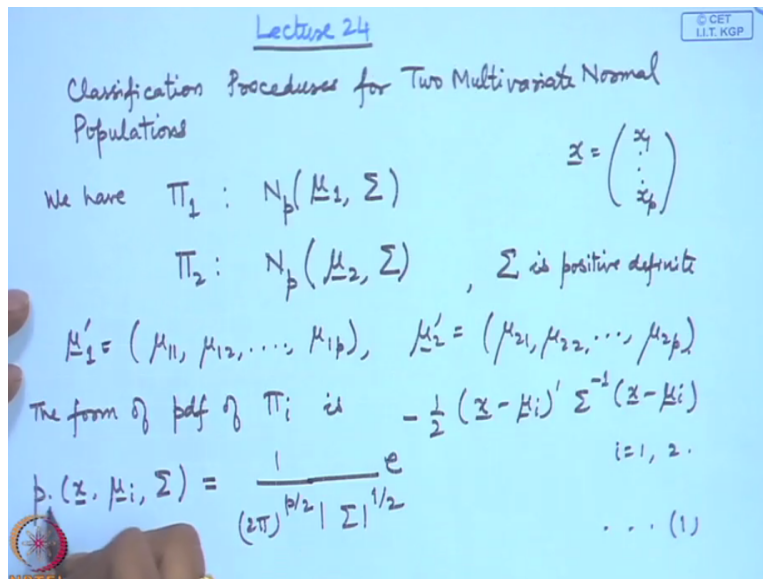 Lecture 24
© CET
I.I.T. KGP
Classification Procedures for Two Multivariate Normal
Populations
x = (x₁ ⋮ xₚ)
We have Π₁ : Nₚ(μ₁, Σ)
Π₂ : Nₚ(μ₂, Σ) , Σ is positive definite
μ₁′ = (μ₁₁, μ₁₂, ...., μ₁ₚ), μ₂′ = (μ₂₁, μ₂₂, ..., μ₂ₚ)
The form of pdf of Πᵢ is
pᵢ(x, μᵢ, Σ) = 1 / ((2π)^(p/2) |Σ|^(1/2)) e^(-1/2 (x-μᵢ)′ Σ⁻¹ (x-μᵢ))
i=1, 2.
... (1)